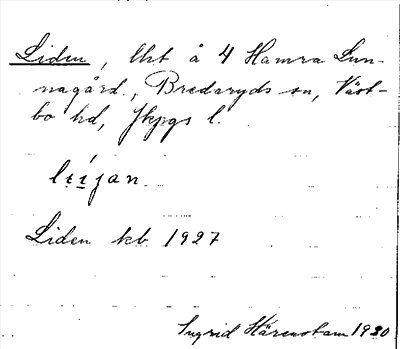 Liden, lht å 4 Hamra Lun-
nagård, Bredaryds sn, Väst-
bo hd, Jkpgs l.
Liden kb 1927
Ingrid Härenstam 1930